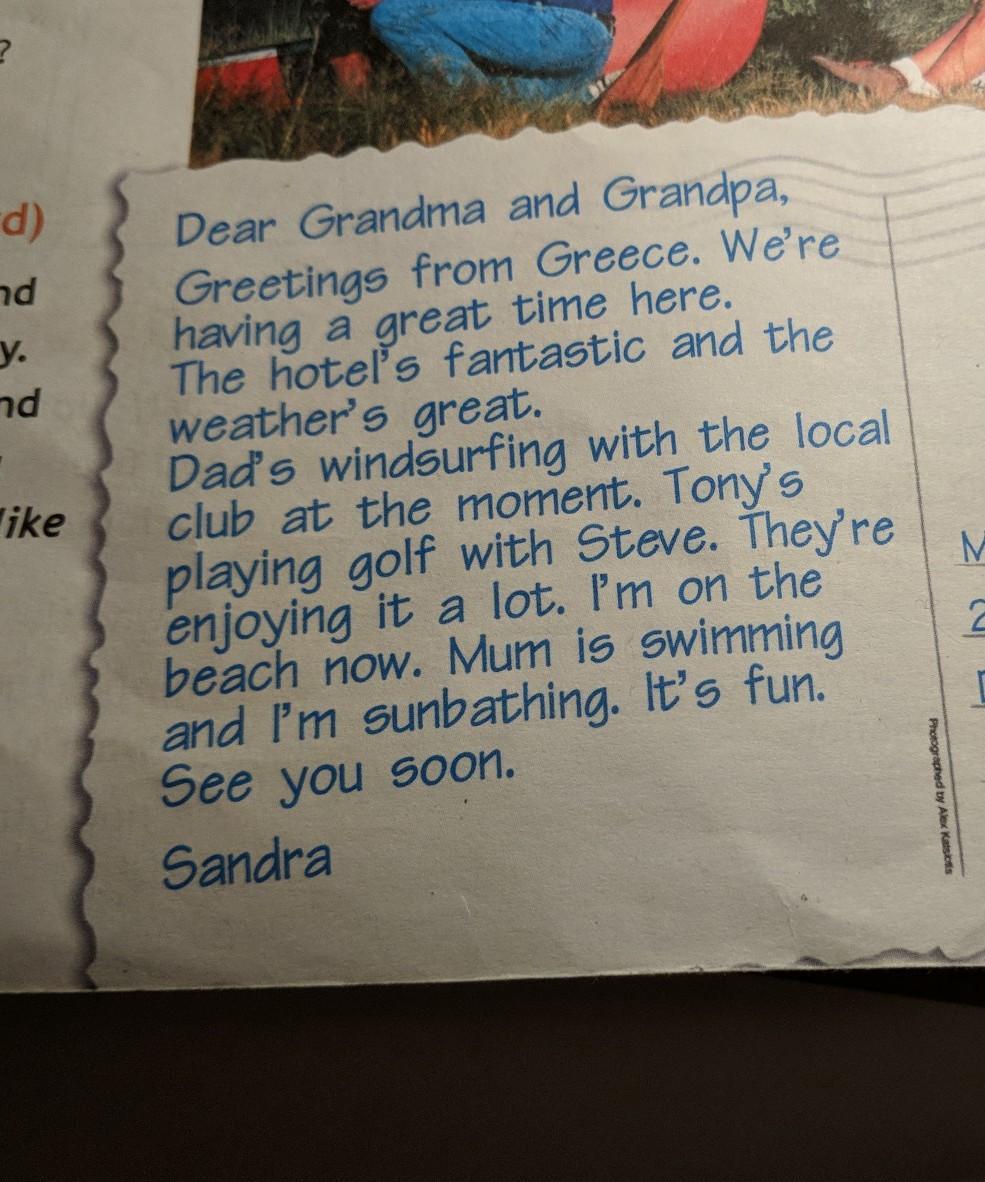 ?
d)
nd
y.
nd
like
Dear Grandma and Grandpa,
Greetings from Greece. We're
having a great time here.
The hotel's fantastic and the
weather's great.
Dad's windsurfing with the local
club at the moment. Tony's
playing golf with Steve. They're
enjoying it a lot. I'm on the
beach now. Mum is swimming
and I'm sunbathing. It's fun.
See you soon.
Sandra
M
2
Photographed by Alex Katsiotis